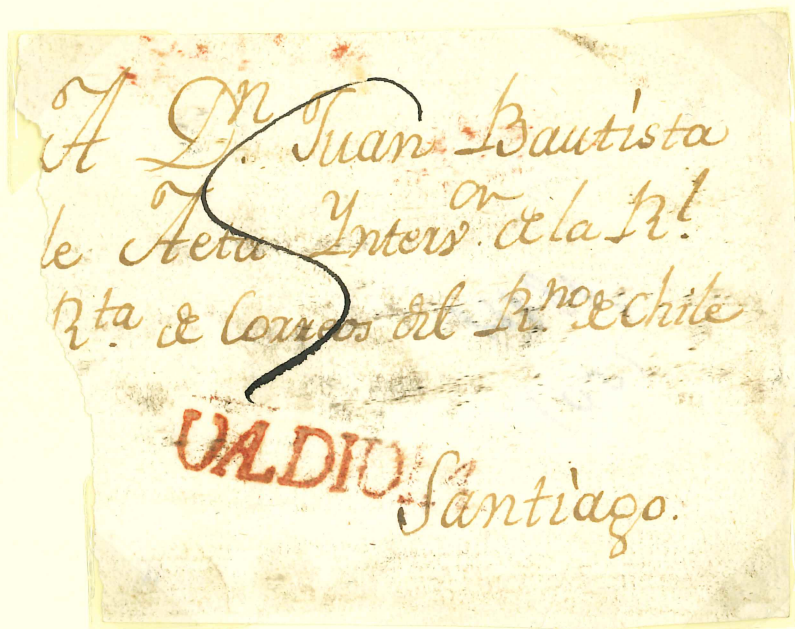 A Dn. Juan Bautista
de Aeta Ynterv.or de la Rl.
Rta. de Correos del R.no de Chile
5
UALDIU
Santiago.